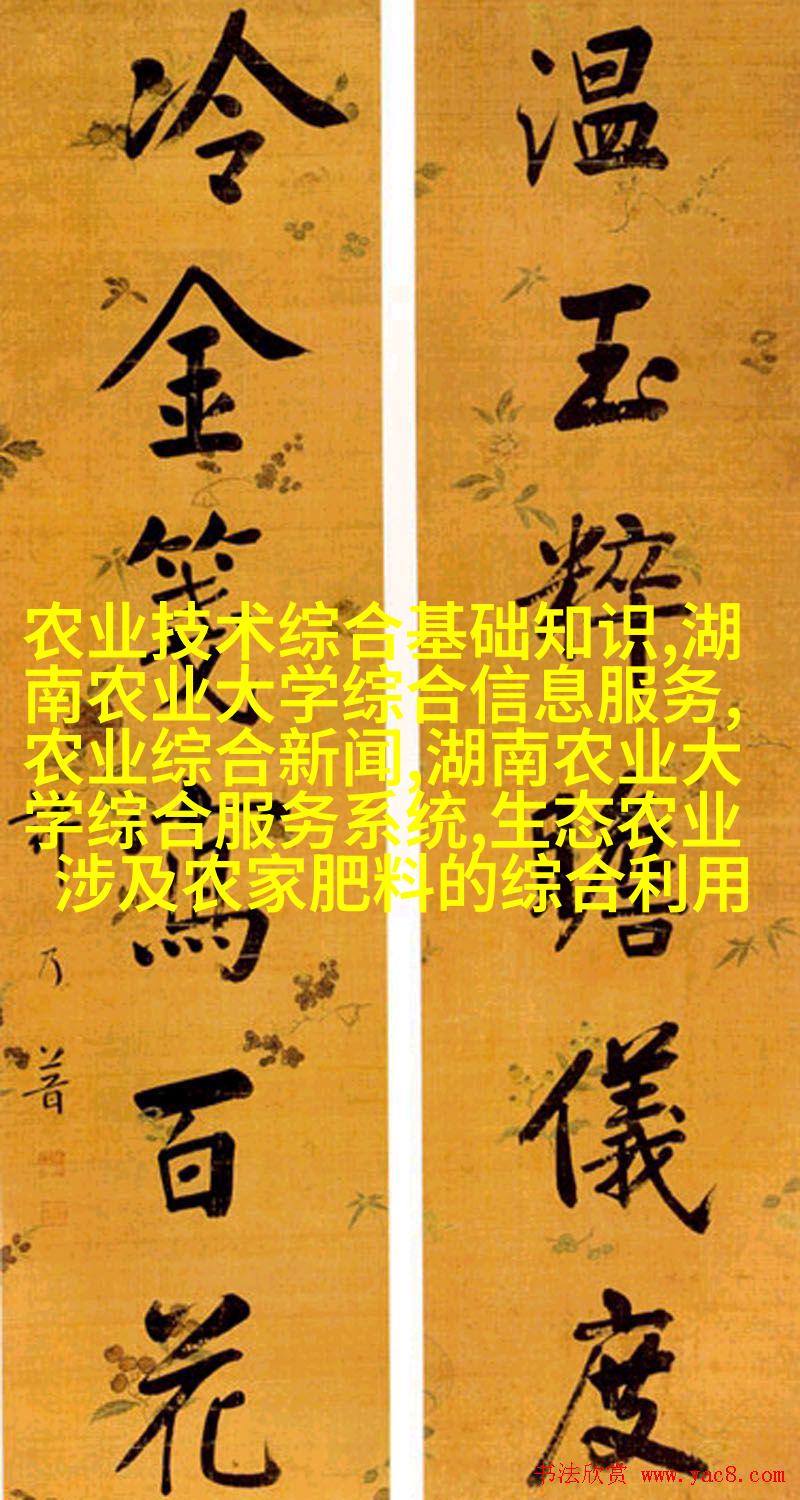 温玉粹瞻儀度
冷金箋寫百花
乃普
农业技术综合基础知识,湖
南农业大学综合信息服务,
农业综合新闻,湖南农业大
学综合服务系统,生态农业
涉及农家肥料的综合利用
书法欣赏 www.yac8.com